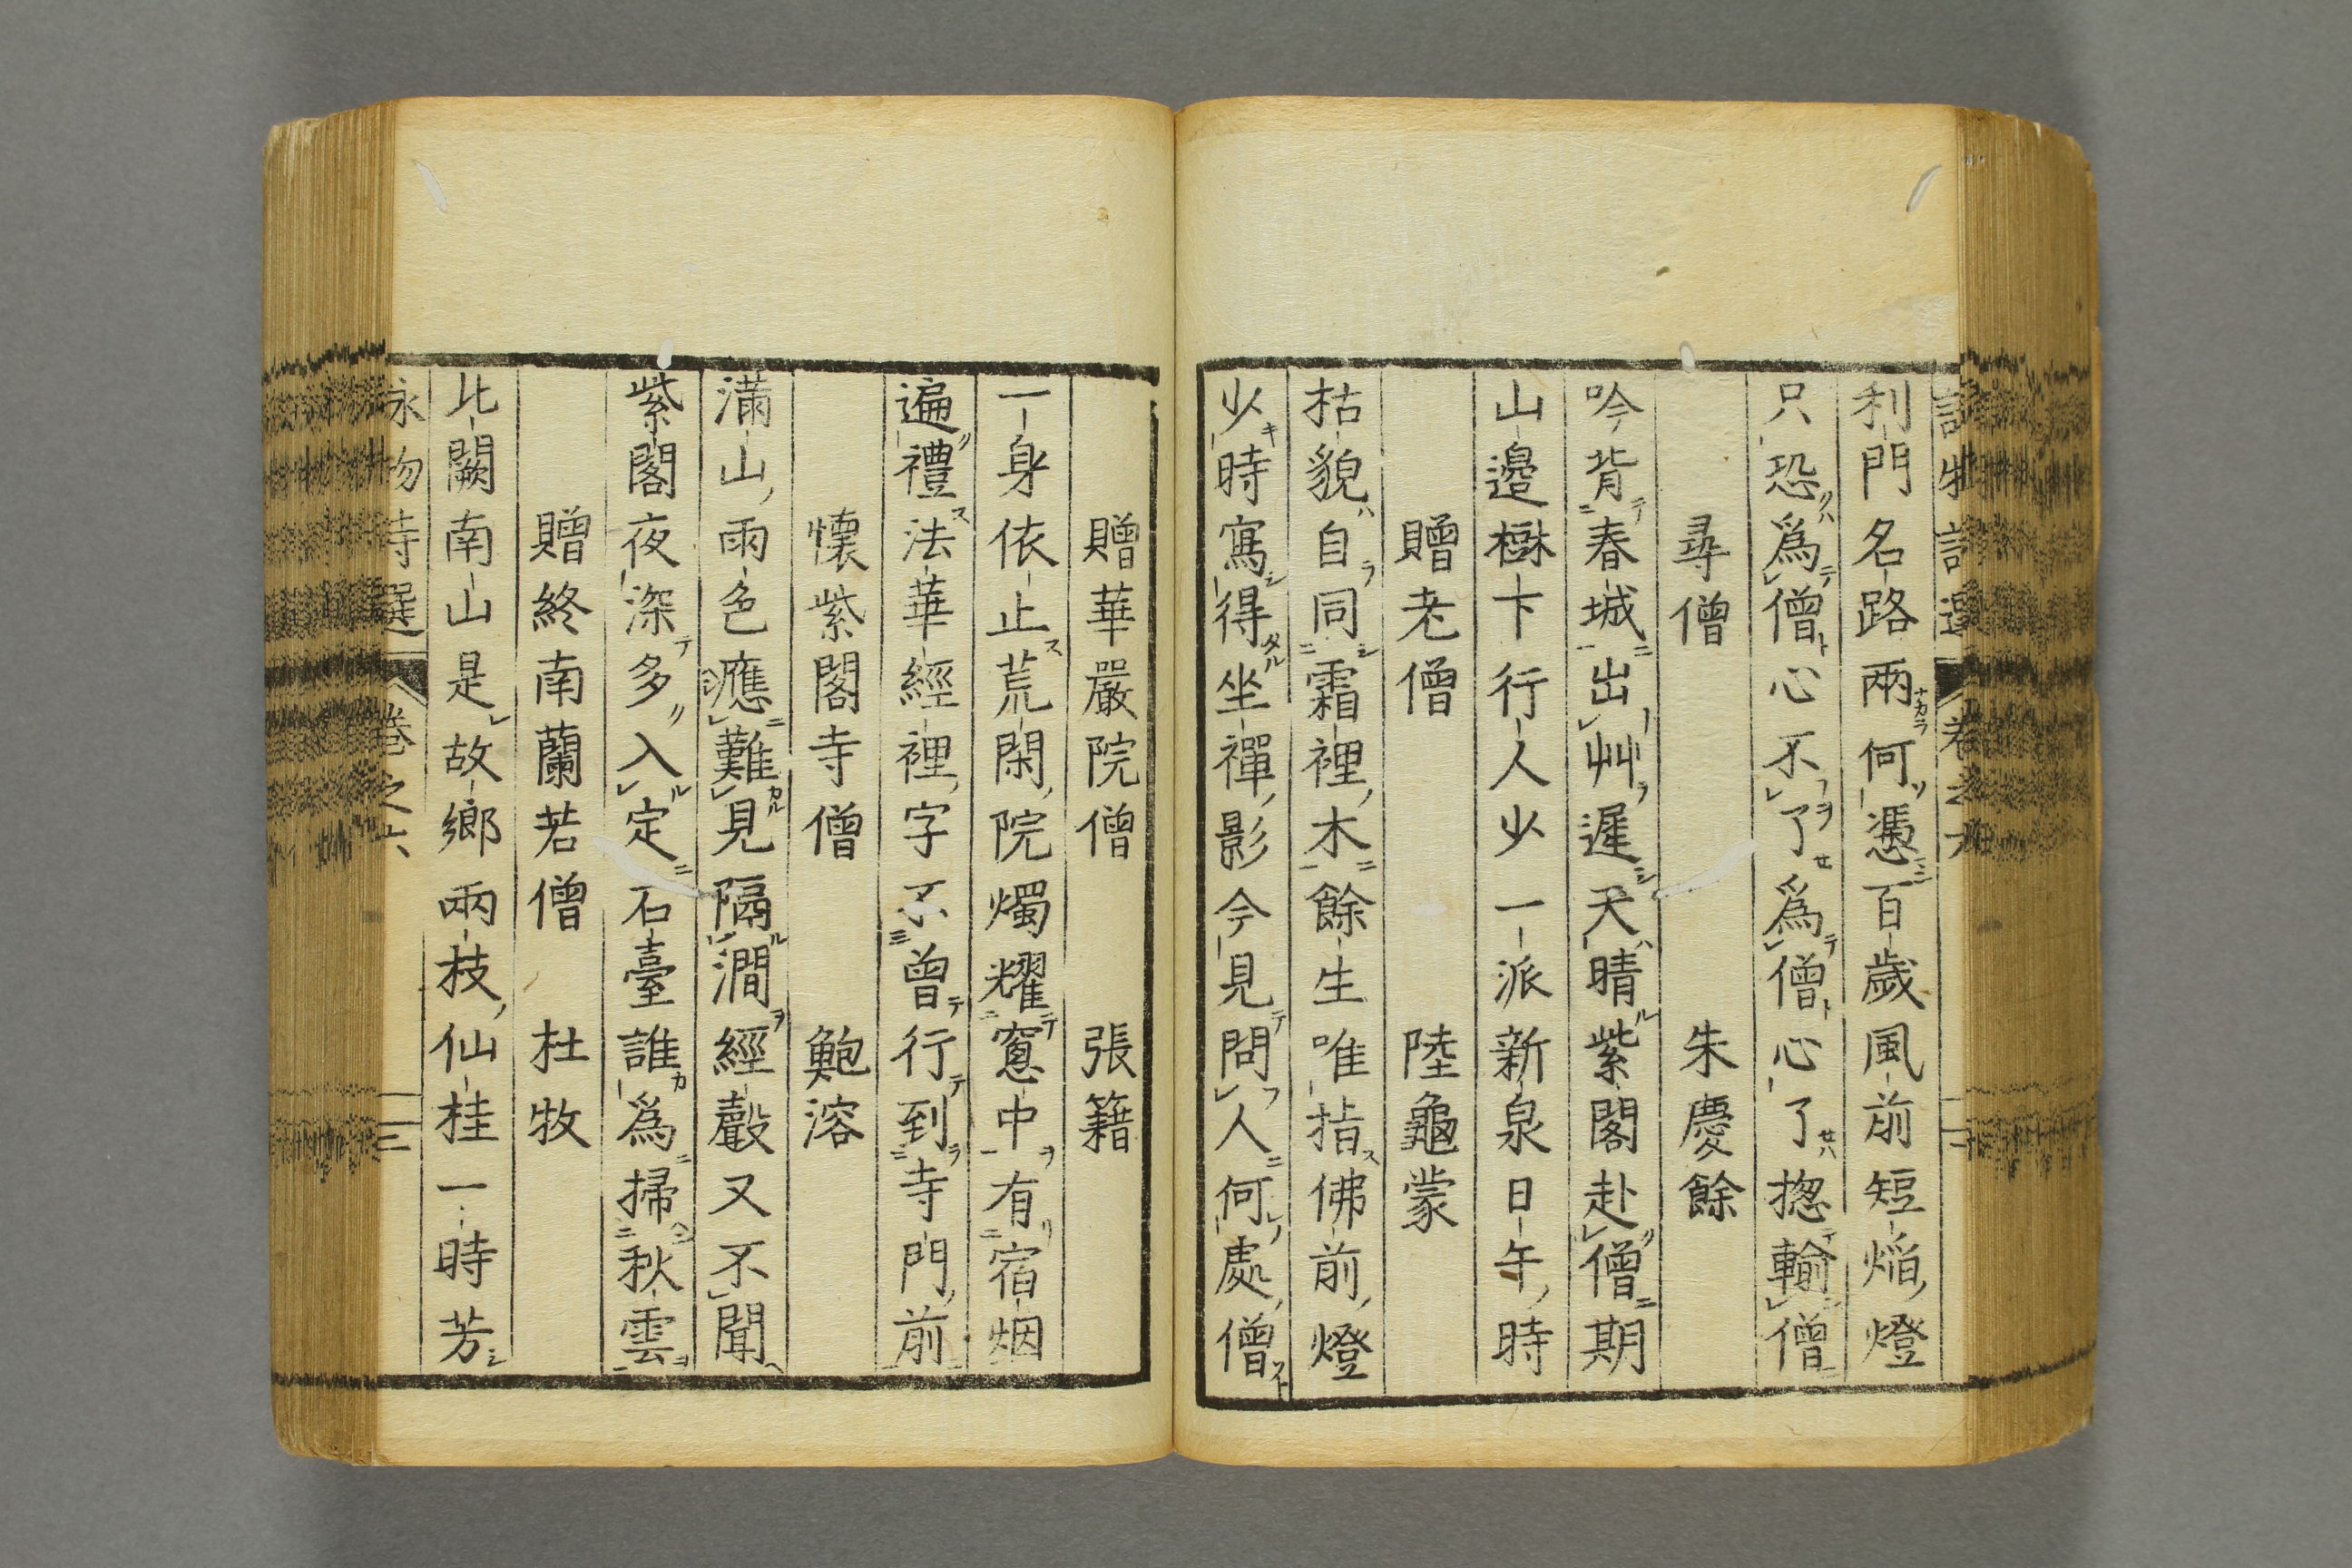 利門名路兩何憑百歲風前短燄燈
只恐爲僧心不了爲僧心了揔輸僧
尋僧 朱慶餘
吟背春城出艸遲天晴紫閣赴僧期
山邉樹下行人少一派新泉日午時
贈老僧 陸龜蒙
枯貌自同霜裡木餘生唯指佛前燈
少時寫得坐禪影今見問人何處僧
贈華嚴院僧 張籍
一身依止荒閑院燭耀窻中有宿烟
遍禮法華經裡字不曾行到寺門前
懷紫閣寺僧 鮑溶
滿山雨色應難見隔澗經聲又不聞
紫閣夜深多入定石臺誰爲掃秋雲
贈終南蘭若僧 杜牧
北闕南山是故鄉兩枝仙桂一時芳
詠物詩選 卷之六 三